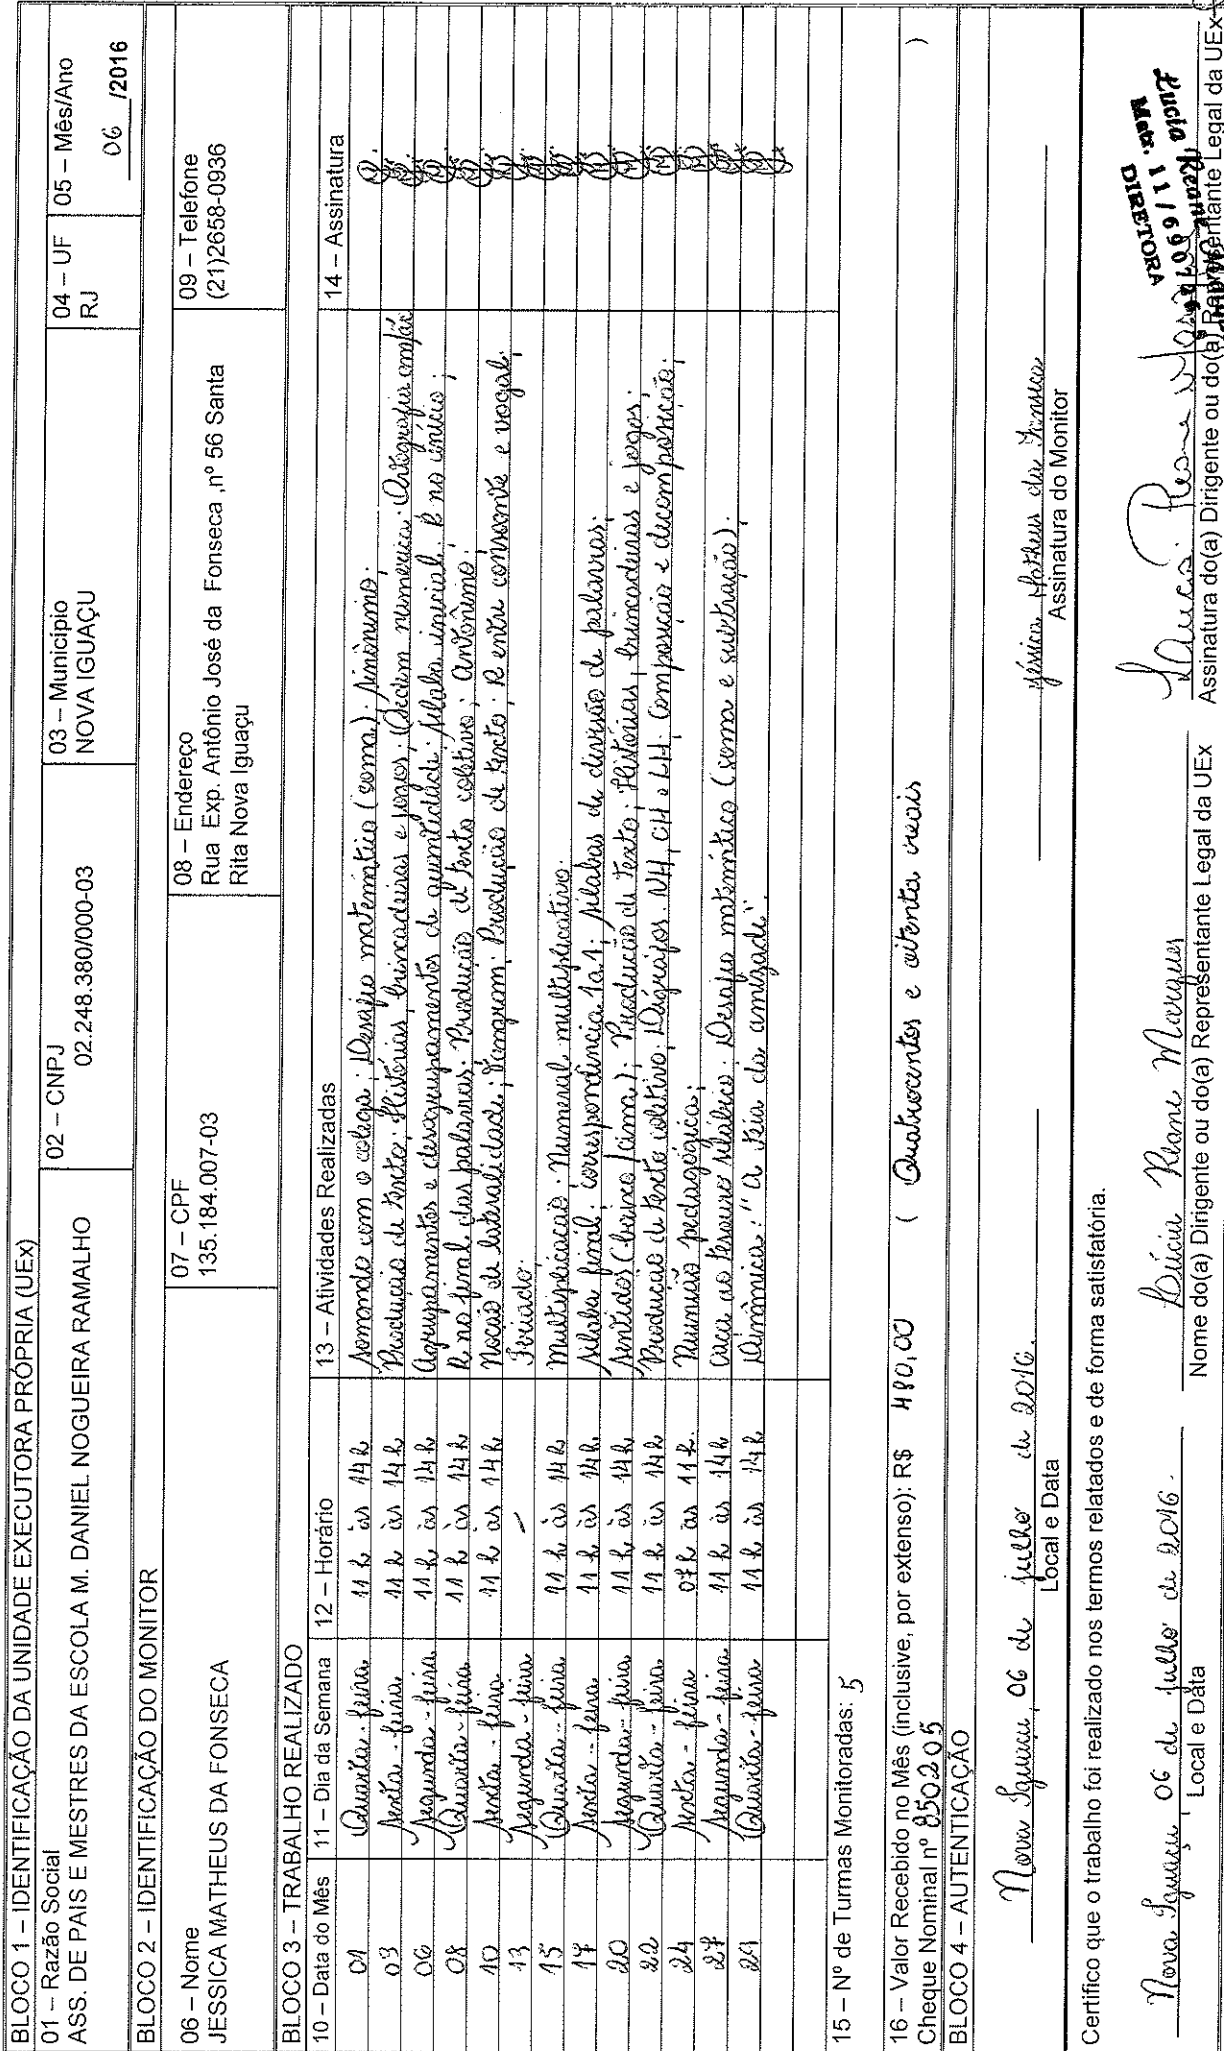 BLOCO 1 – IDENTIFICAÇÃO DA UNIDADE EXECUTORA PRÓPRIA (UEx)
01 – Razão Social
ASS. DE PAIS E MESTRES DA ESCOLA M. DANIEL NOGUEIRA RAMALHO
02 – CNPJ
02.248.380/000-03
03 – Município
NOVA IGUAÇU
04 – UF
RJ
05 – Mês/Ano
06 /2016
BLOCO 2 – IDENTIFICAÇÃO DO MONITOR
06 – Nome
JESSICA MATHEUS DA FONSECA
07 – CPF
135.184.007-03
08 – Endereço
Rua Exp. Antônio José da Fonseca ,nº 56 Santa
Rita Nova Iguaçu
09 – Telefone
(21)2658-0936
BLOCO 3 – TRABALHO REALIZADO
10 – Data do Mês 11 – Dia da Semana 12 – Horário 13 – Atividades Realizadas 14 – Assinatura
01 Quarta-feira 11 h às 14 h Somando com o colega; Desafio matemático (soma); sinônimo.
03 Sexta-feira 11 h às 14 h Produção de texto; Histórias, brincadeiras e jogos; Ordem numérica; Ortografia
06 Segunda-feira 11 h às 14 h Agrupamentos e desagrupamentos de quantidade; sílaba inicial; R no início;
08 Quarta-feira 11 h às 14 h R no final das palavras; Produção de texto coletivo; antônimo;
10 Sexta-feira 11 h às 14 h Noção de lateralidade; Tangram; Produção de texto; R entre consoante e vogal;
13 Segunda-feira / Feriado.
15 Quarta-feira 11 h às 14 h Multiplicação. Numeral multiplicativo.
17 Sexta-feira 11 h às 14 h Sílaba final; correspondência 1 a 1; sílabas de divisão de palavras;
20 Segunda-feira 11 h às 14 h Sentidos (baixo/cima); Produção de texto; Histórias, brincadeiras e jogos;
22 Quarta-feira 11 h às 14 h Produção de texto coletivo; Dígrafos NH, CH e LH; Composição e decomposição;
24 Sexta-feira 07h às 11h. Reunião pedagógica;
27 Segunda-feira 11 h às 14 h Caça ao tesouro silábico; Desafio matemático (soma e subtração).
29 Quarta-feira 11 h às 14 h Dinâmica: "A teia da amizade".
15 – Nº de Turmas Monitoradas: 5
16 – Valor Recebido no Mês (inclusive, por extenso): R$ 480,00 ( Quatrocentos e oitenta reais )
Cheque Nominal nº 850205
BLOCO 4 – AUTENTICAÇÃO
Nova Iguaçu, 06 de julho de 2016.
Local e Data
Jéssica Matheus da Fonseca
Assinatura do Monitor
Certifico que o trabalho foi realizado nos termos relatados e de forma satisfatória.
Nova Iguaçu, 06 de julho de 2016.
Local e Data
Lúcia Reane Marques
Nome do(a) Dirigente ou do(a) Representante Legal da UEx
Lucia Reane
Assinatura do(a) Dirigente ou do(a) Representante Legal da UEx
Lucia Reane
Matr. 11/690
DIRETORA